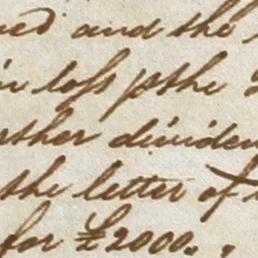 ed and the
in loss pthe
rther dividen
the letter of
for £2000.,